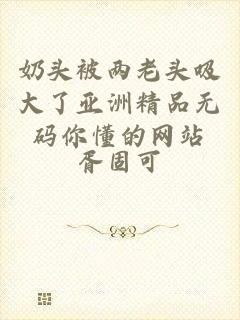 奶头被两老头吸
大了亚洲精品无
码你懂的网站
胥固可